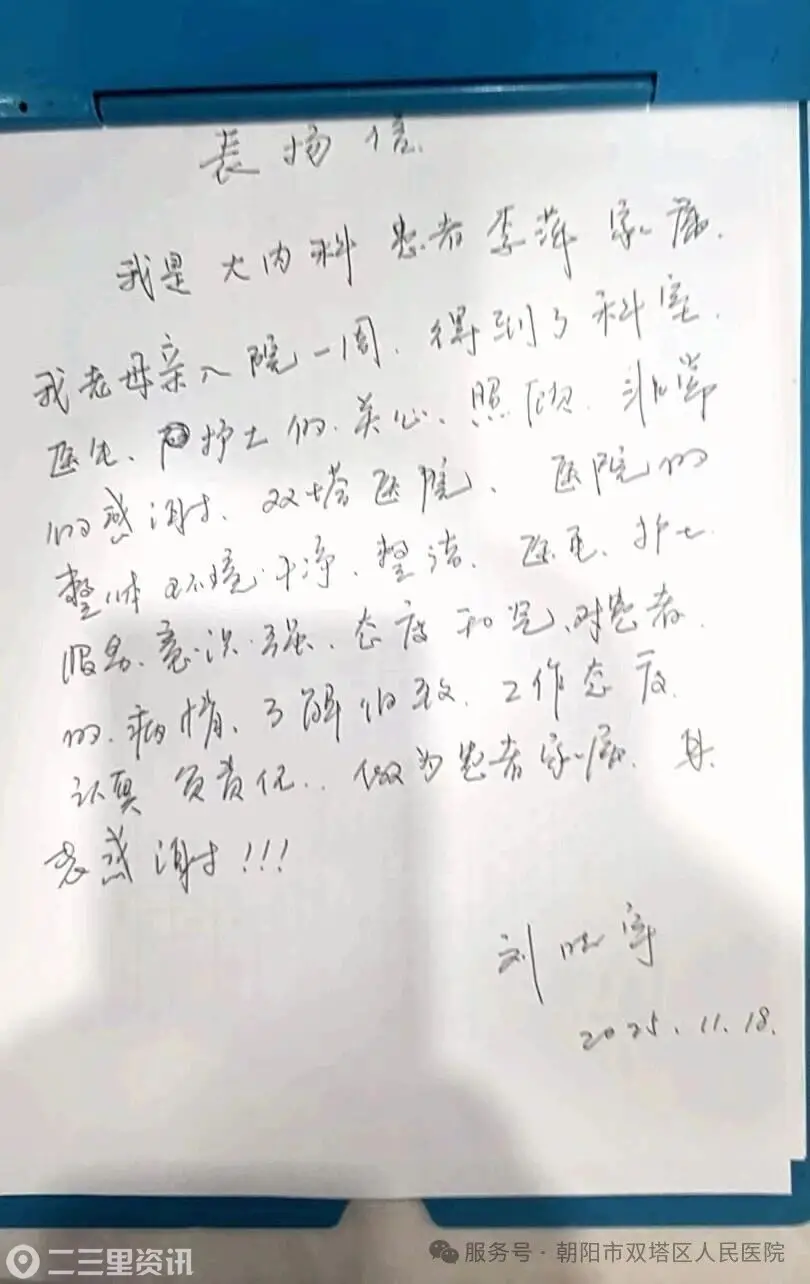 表扬信
我是大内科患者李萍家属.
我老母亲入院一周.得到了科室.
医生、护士的.关心、照顾.非常
的感谢.双塔医院、医院的
整体环境.干净、整洁.医生、护士
服务.意识.强.态度和蔼、对患者.
的.病情.了解.工作态度.
认真负责任..做为患者家属.其
感谢!!!
刘
2025.11.18.
二三里资讯
服务号·朝阳市双塔区人民医院